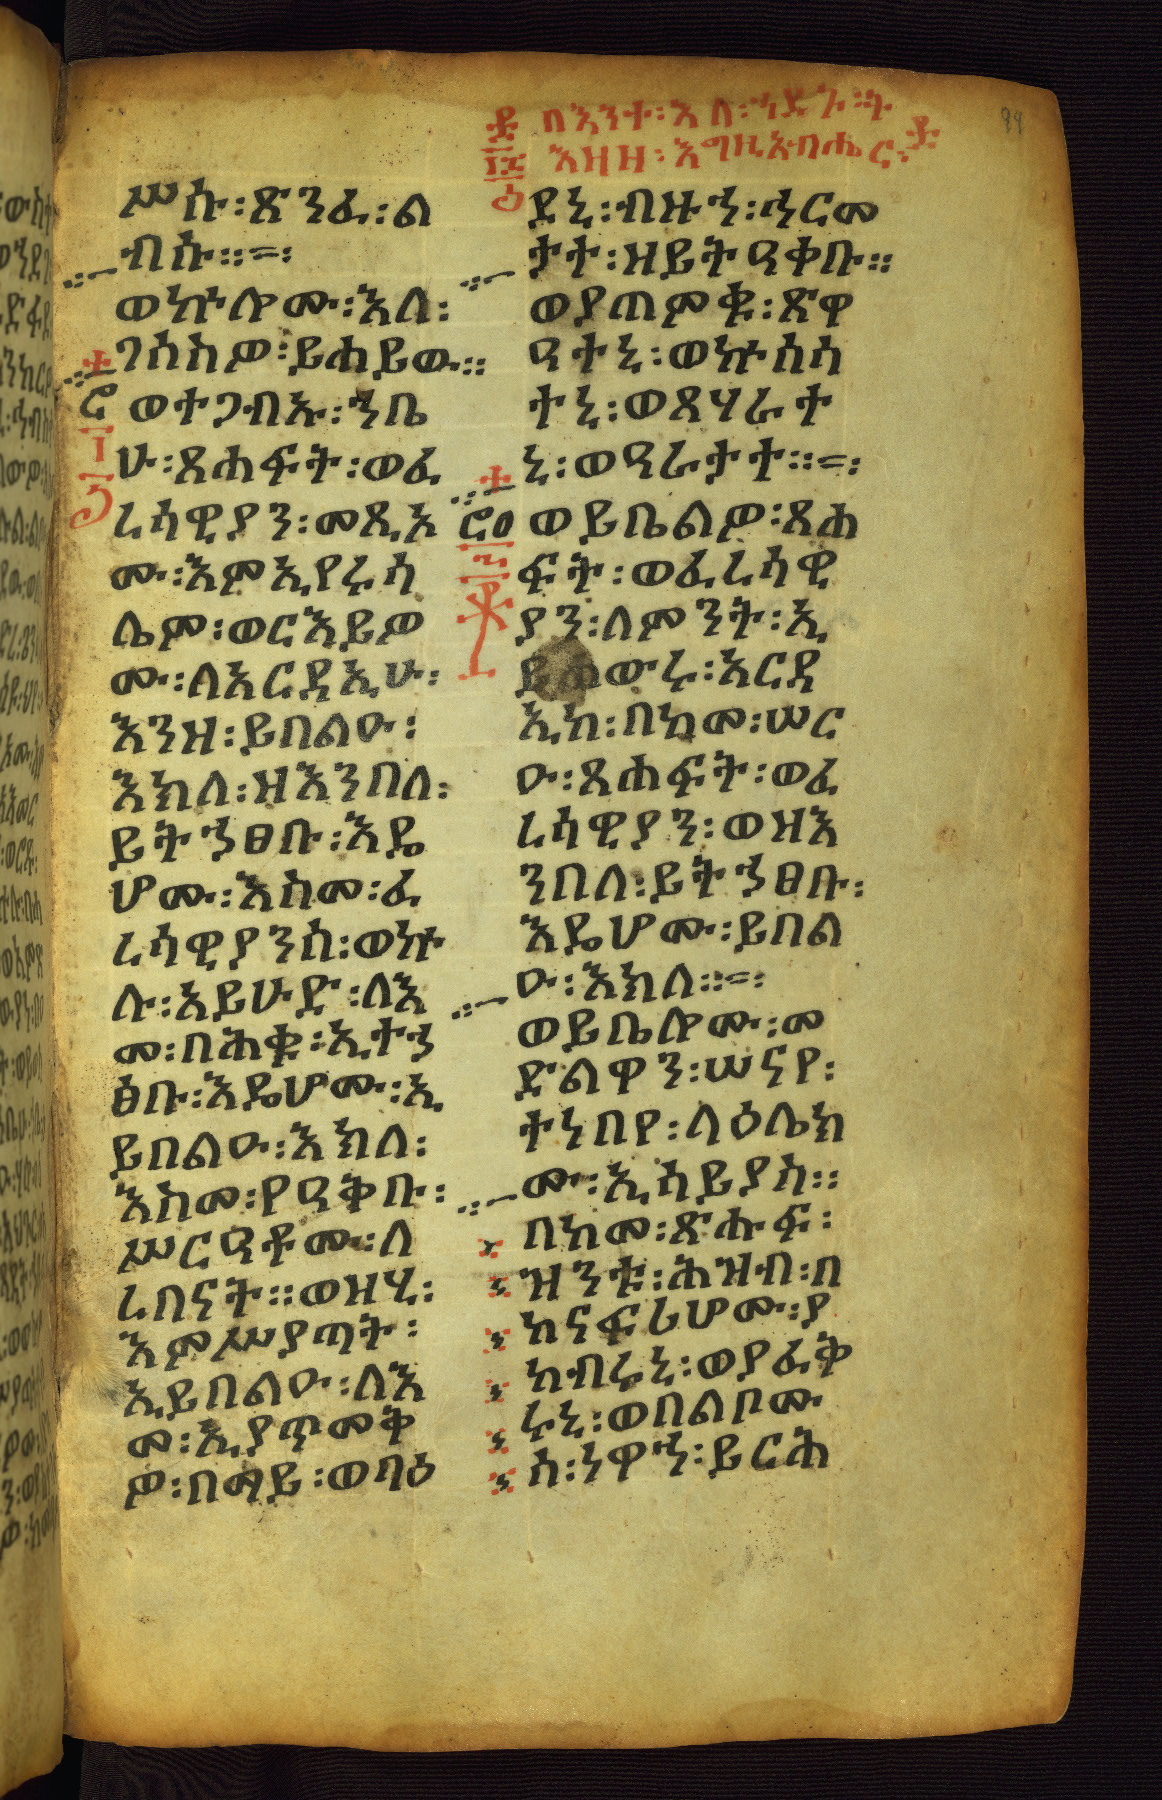 በእንተ፡እለ፡ኀደጉ፡ት
እዛዘ፡እግዚአብሔር፡
ሥሱ፡ጽንፈ፡ል
ብሱ።=፡
ወኵሎሙ፡እለ፡
ገሰስዎ፡ይሐይው።
ወተጋብኡ፡ኀቤ
ሁ፡ጸሐፍት፡ወፈ
ሪሳዊያን፡መጺኦ
ሙ፡እምኢየሩሳ
ሌም፡ወርእይዎ
ሙ፡ለአርዳኢሁ፡
እንዘ፡ይበልዑ፡
እክለ፡ዝእንበለ፡
ይትኀፀቡ፡እዴ
ሆሙ፡እስመ፡ፈ
ሪሳዊያንሰ፡ወኵ
ሉ፡አይሁድ፡ለእ
መ፡በሕቁ፡ኢተኀ
ፅቡ፡እዴሆሙ፡ኢ
ይበልዑ፡እክለ፡
እስመ፡የዓቅቡ፡
ሥርዓቶሙ፡ለ
ረበናት።ወዝሂ፡
እምሥያጣት፡
ኢይበልዑ፡ለእ
መ፡ኢያጥመቅ
ዎ፡በማይ፡ወባዕ
ደኒ፡ብዙኀ፡ኅርመ
ታተ፡ዘይትዓቀቡ።
ወያጠምቁ፡ጽዋ
ዓተኒ፡ወኵስኳ
ተኒ፡ወጸሃራተ
ኒ፡ወዓራታተ።=፡
ወይቤልዎ፡ጸሐ
ፍት፡ወፈሪሳዊ
ያን፡ለምንት፡ኢ
ይሐውሩ፡አርዳ
ኢከ፡በከመ፡ሠር
ዑ፡ጸሐፍት፡ወፈ
ሪሳዊያን፡ወዝእ
ንበለ፡ይትኀፀቡ፡
እዴሆሙ፡ይበል
ዑ፡እክለ።=፡
ወይቤሎሙ፡መ
ድልዋን፡ሠናየ፡
ተነበየ፡ላዕሌክ
ሙ፡ኢሳይያስ።
በከመ፡ጽሑፍ፡
ዝንቱ፡ሕዝብ፡በ
ከናፍሪሆሙ፡ያ
ከብሩኒ፡ወያፈቅ
ሩኒ፡ወበልቦሙ
ሰ፡ነዋኀ፡ይርሕ